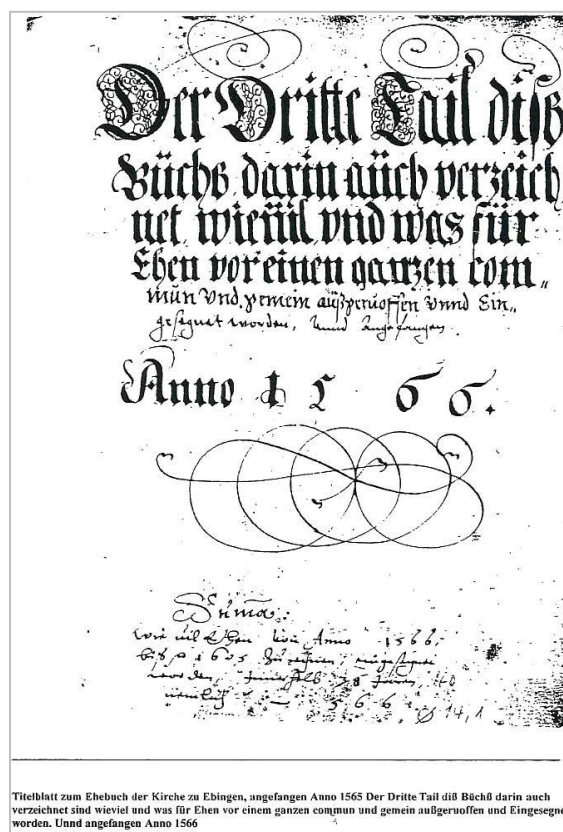 Der Dritte Tail diß
Büchß darin aüch verzeich
net wieuil vnd was für
Ehen vor einen ganzen com„
mün vnd gemein außgeruoffen vnnd Ein„
gesegnet worden, vnnd angefangen
Anno 1566.
Suma:
wie uil Ehen von Anno 1566.
biß 1605 zu
worden, innerhalb Jaren, 40
nemlich — 566
14,1
Titelblatt zum Ehebuch der Kirche zu Ebingen, angefangen Anno 1565 Der Dritte Tail diß Büchß darin auch
verzeichnet sind wieviel und was für Ehen vor einem ganzen commun und gemein außgeruoffen und Eingesegne
worden. Unnd angefangen Anno 1566